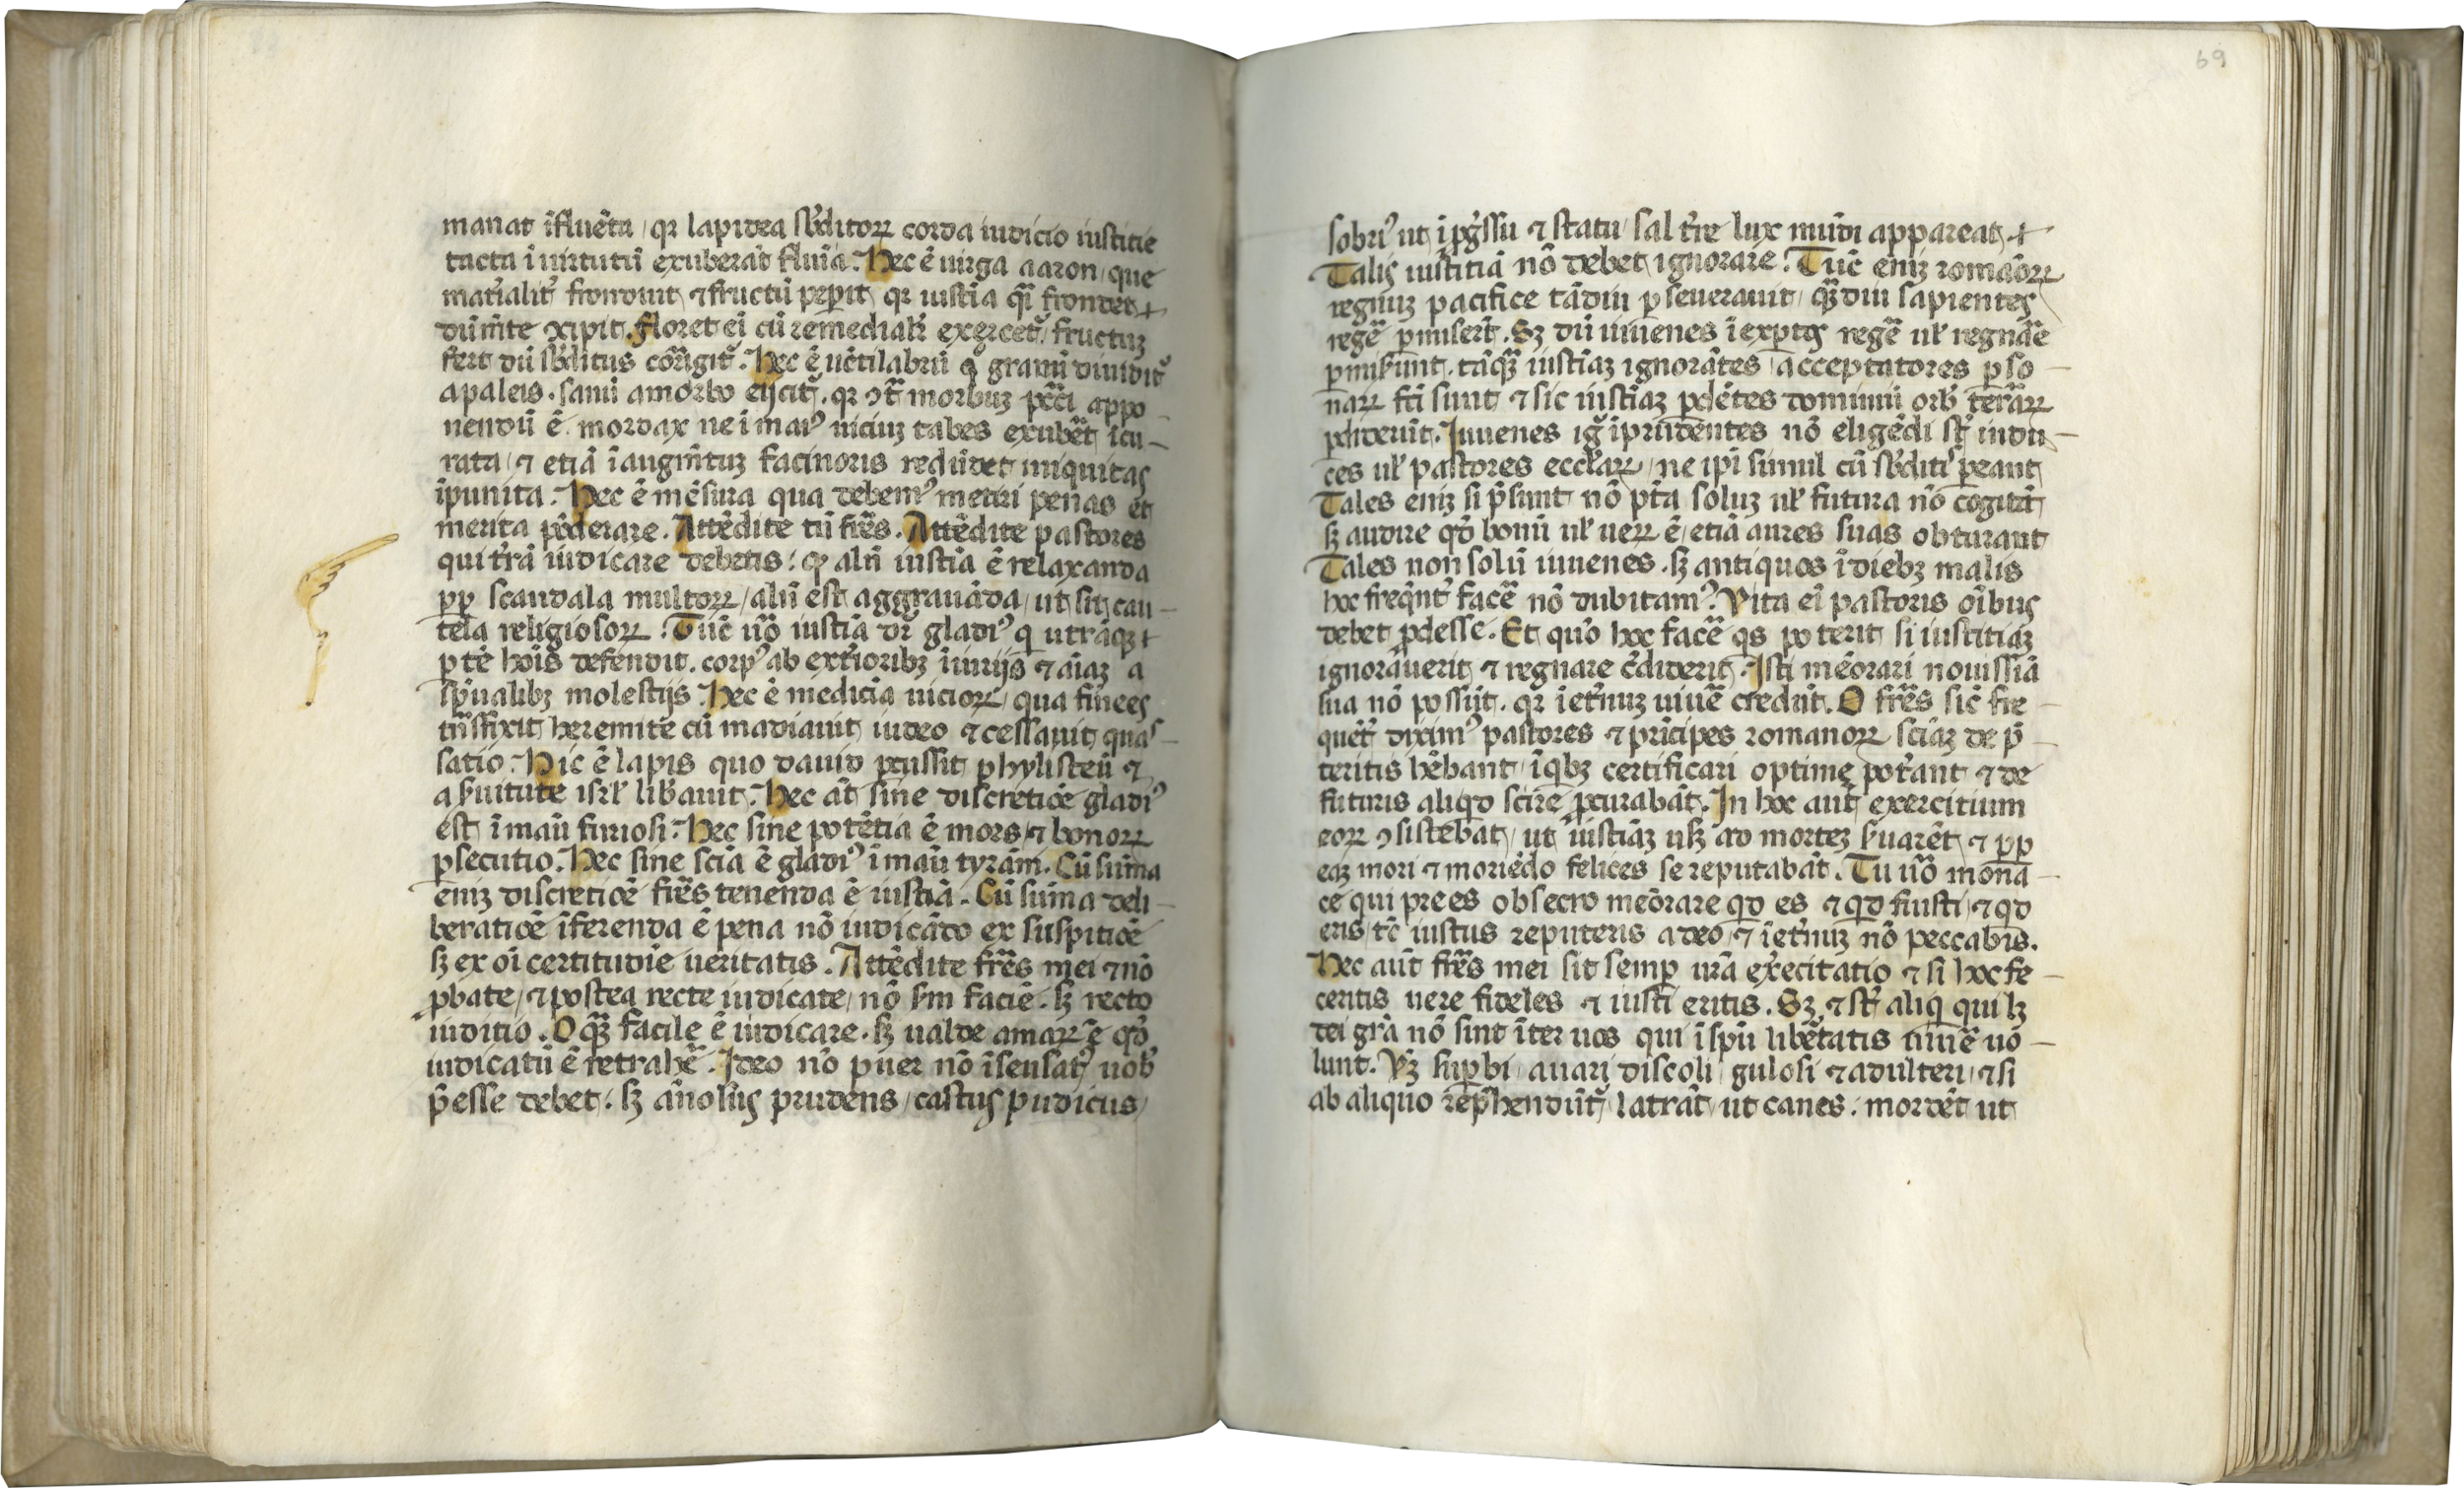 manat īfluēta / qꝛ lapidea sb̄ditoꝝ corda iudicio iustitie
tacta ī uirtutū exuberāt fluīa. Hec ē uirga aaron / que
mat̓ialit̓ fronduit ⁊ fructū pep̄it qꝛ iustīa q̄ frondet ⁊
dū mīte ꝯcipit. floret eī cū remediali exercet̓ / fructuꝫ
fert dū sb̄ditus corrīgit̓. Hec ē uētilabrū qͦ granū diuidit̓
a paleis. sanū a morbo eijcit̓. qꝛ ꝯt̄ morbuꝫ pctī appo-
nendū ē mordax ne ī maiꝰ uiciuꝫ tabes exubēt īcu-
rata / ⁊ etiā ī augm̄tuꝫ facinoris redūdet iniquitas
īpunita. Hec ē mēsura qua debemꝰ metiri penas et
merita pōderare. Attēdite tū frēs. Attēdite pastores
qui t̓rā iudicare debetis: qꝛ alīn iustīa ē relaxanda
ꝓp scandala multoꝝ / alīn est aggrauāda / ut sit cau-
tela religiosoꝝ. Tūc ūo iustīa dr̄ gladiꝰ qꝛ utrāqꝫ ⁊
ꝑtē hoīs defendit. corpꝰ ab ext̓ioribꝫ īiurijs ⁊ aīaꝫ a
sp̄ualibꝫ molestijs. Hec ē medicīa uicioꝝ / qua finees
trāsfixit heremite cū madianit iudeo ⁊ cessauit quas-
satio. Hic ē lapis quo dauid pcussit phylisteū ⁊
a s̄uitute isrl̄ lib̄auit. Hec āt sine discretiōe gladiꝰ
est ī manū furiosi. Hec sine potētia ē mors / ⁊ bonoꝝ
ꝑsecutio. Hec sine scīa ē gladiꝰ ī manū tyrāni. Cū sūma
eniꝫ discretiōe frēs tenenda ē iustīa. Cū sūma deli-
beratiōe īferenda ē pena nō iudicādo ex suspitiōe
sꝫ ex oī certitudīe ueritatis. Attēdite frēs mei ⁊ nō
ꝓbate / ⁊ postea recte iudicate / nō s̄m faciē. sꝫ recto
iuditio. O qꝫ facile ē iudicare. sꝫ ualde amaꝝ ē qd̓
iudicatū ē retrahē. Ideo nō puer nō īsensatꝰ uob̄
p̄esse debet. sꝫ annosus prudens / castus pudicus /
sobriꝰ ut ī ꝓgressu ⁊ statu / sal t̓re lux mūdi appareat ⁊
Talis iustitiā nō debet ignorare. Tūc eniꝫ romāoꝝ
regnuꝫ pacifice tādiu ꝑseuerauit / qꝫdiu sapientes
regē̄ ꝑmiserūt. Sꝫ dū iuuenes īexptos regē ul̓ regnāe
ꝑmis̄unt. tāqꝫ iustīaꝫ ignorātes / acceptatores ꝑso-
naꝝ fcī sunt ⁊ sic iustīaꝫ ꝑdētes dominiū orb̄ terraꝝ
ꝑdiderūt. Iuuenes ig̓ īprudentes nō eligēdi st̓ ī iudi-
ces ul̓ pastores eccl̄aꝝ / ne ipī simul cū sb̄ditꝰ peant
Tales eniꝫ si p̄sunt nō pt̄ita soluꝫ ul̓ futura nō cogitāt
sꝫ audire qd̓ bonū ul̓ ueꝝ ē / etiā aures suas obturant
Tales non solū iuuenes. sꝫ antiquos ī diebꝫ malis
hoc freqn̄t̓ facē̄ nō dubitamꝰ. Uita eī pastoris oībus
debet ꝓdesse. Et quō hoc facē̄ qs poterit si iustitiaꝫ
ignorauerit ⁊ regnare crediderit. Isti memorari nouissīa
sua nō possūt. qꝛ ī et̓nuꝫ uiuē̄ credūt. O frēs sic̄ fre-
quēt̓ diximꝰ pastores ⁊ prīcipes romanoꝝ scīaꝫ de p̄-
teritis hēbant / ī qbꝫ certificari optime pot̓ant ⁊ de
futuris aliqd scire ꝓcurabāt. In hoc aūt exercitium
eoꝝ ꝯsistebat / ut iustīaꝫ usqꝫ ad morteꝫ s̄uarēt / ⁊ ꝓp
eaꝫ mori ⁊ moriēdo felices se reputabāt. Tu ūo mona-
ce qui prees obsecro memorare qd es ⁊ qd fuisti / ⁊ qd
eris / tc̄ iustus reputeris a deo / ⁊ ī et̓nuꝫ nō peccabis.
Hec aūt frēs mei sit semꝑ ūrā exercitatio ⁊ si hoc fe-
ceritis uere fideles ⁊ iusti eritis. Sꝫ ⁊ st̓ aliqi qui lꝫ
dei grā nō sint īter uos qui ī spū libertatis uiuē̄ uo-
lunt. Uꝫ supbi / auari / discoli / gulosi ⁊ adulteri / ⁊ si
ab aliquo rep̄hendūt̓ / latrāt ut canes. mordēt ut
69